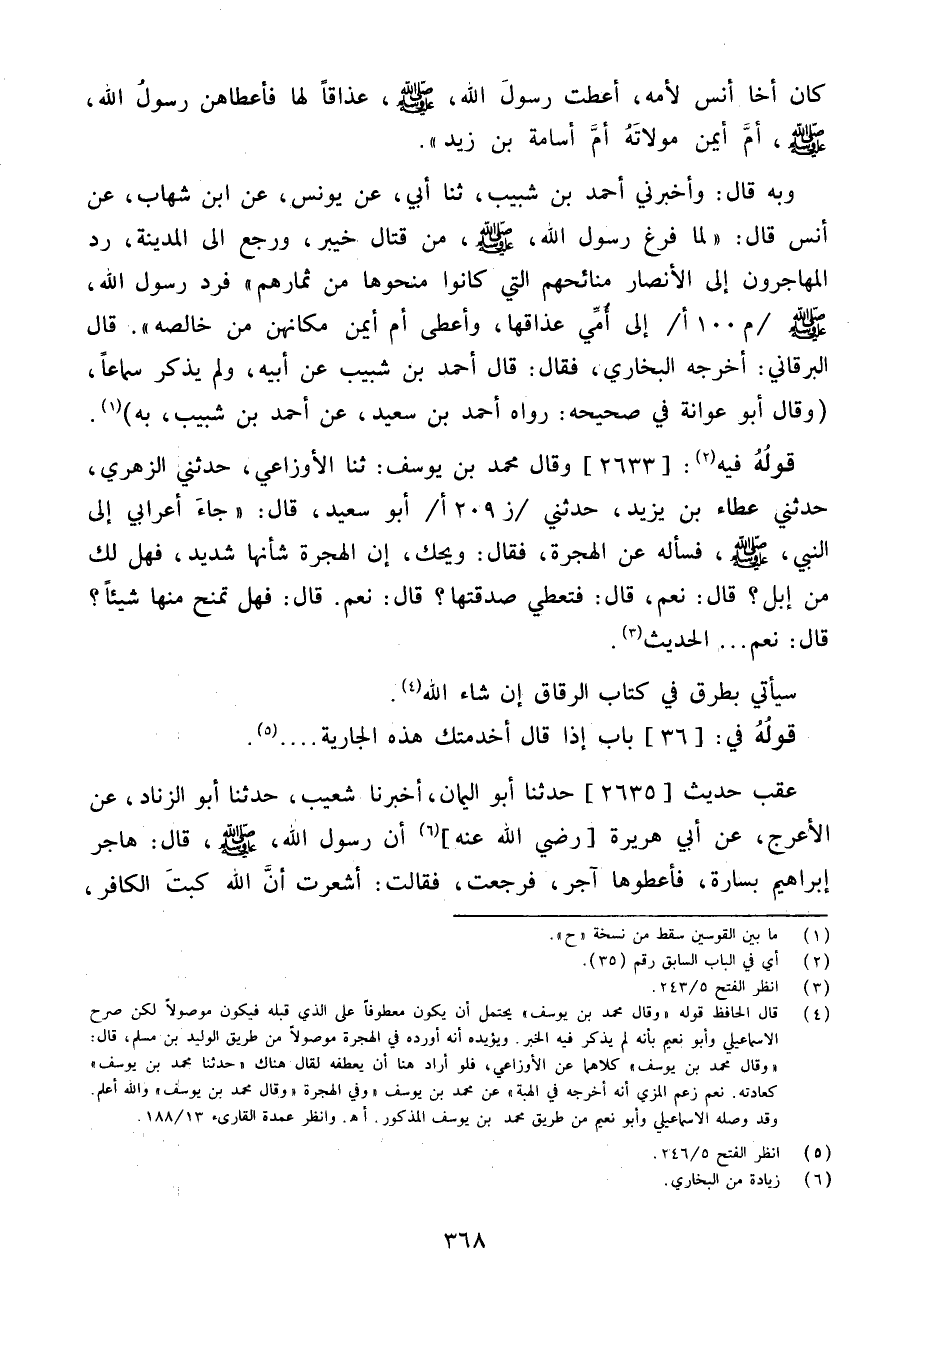 كان أخا أنس لأمه، أعطت رسولَ الله، ﷺ، عذاقاً لها فأعطاهن رسولُ الله،
ﷺ، أمَّ أيمن مولاتَهُ أمَّ أسامة بن زيد».
وبه قال: وأخبرني أحمد بن شبيب، ثنا أبي، عن يونس، عن ابن شهاب، عن
أنس قال: «لما فرغ رسول الله، ﷺ، من قتال خيبر، ورجع الى المدينة، رد
المهاجرون إلى الأنصار منائحهم التي كانوا منحوها من ثمارهم» فرد رسول الله،
ﷺ /م ١٠٠ أ/ إلى أُمِّي عذاقها، وأعطى أم أيمن مكانهن من خالصه». قال
البرقاني: أخرجه البخاري، فقال: قال أحمد بن شبيب عن أبيه، ولم يذكر سماعاً،
(وقال أبو عوانة في صحيحه: رواه أحمد بن سعيد، عن أحمد بن شبيب، به)(١).
قولُهُ فيه(٢): [٢٦٣٣] وقال محمد بن يوسف: ثنا الأوزاعي، حدثني الزهري،
حدثني عطاء بن يزيد، حدثني /ز ٢٠٩ أ/ أبو سعيد، قال: «جاءَ أعرابي إلى
النبي، ﷺ، فسأله عن الهجرة، فقال: ويحك، إن الهجرة شأنها شديد، فهل لك
من إبل؟ قال: نعم، قال: فتعطي صدقتها؟ قال: نعم. قال: فهل تمنح منها شيئاً؟
قال: نعم... الحديث(٣).
سيأتي بطرق في كتاب الرقاق إن شاء الله(٤).
قولُهُ في: [٣٦] باب إذا قال أخدمتك هذه الجارية....(٥).
عقب حديث [٢٦٣٥] حدثنا أبو اليمان، أخبرنا شعيب، حدثنا أبو الزناد، عن
الأعرج، عن أبي هريرة [رضي الله عنه](٦) أن رسول الله، ﷺ، قال: هاجر
إبراهيم بسارة، فأعطوها آجر، فرجعت، فقالت: أشعرت أنَّ الله كبتَ الكافر،
(١) ما بين القوسين سقط من نسخة «ح».
(٢) أي في الباب السابق رقم (٣٥).
(٣) انظر الفتح ٢٤٣/٥.
(٤) قال الحافظ قوله «وقال محمد بن يوسف» يحتمل أن يكون معطوفاً على الذي قبله فيكون موصولاً لكن صرح
الاسماعيلي وأبو نعيم بأنه لم يذكر فيه الخبر. ويؤيده أنه أورده في الهجرة موصولاً من طريق الوليد بن مسلم، قال:
«وقال محمد بن يوسف» كلاهما عن الأوزاعي، فلو أراد هنا أن يعطفه لقال هناك «حدثنا محمد بن يوسف»
كعادته. نعم زعم المزي أنه أخرجه في الهبة» عن محمد بن يوسف «وفي الهجرة «وقال محمد بن يوسف» والله أعلم.
وقد وصله الاسماعيلي وأبو نعيم من طريق محمد بن يوسف المذكور. أ هـ. وانظر عمدة القارىء ١٨٨/١٣.
(٥) انظر الفتح ٢٤٦/٥.
(٦) زيادة من البخاري.
٣٦٨